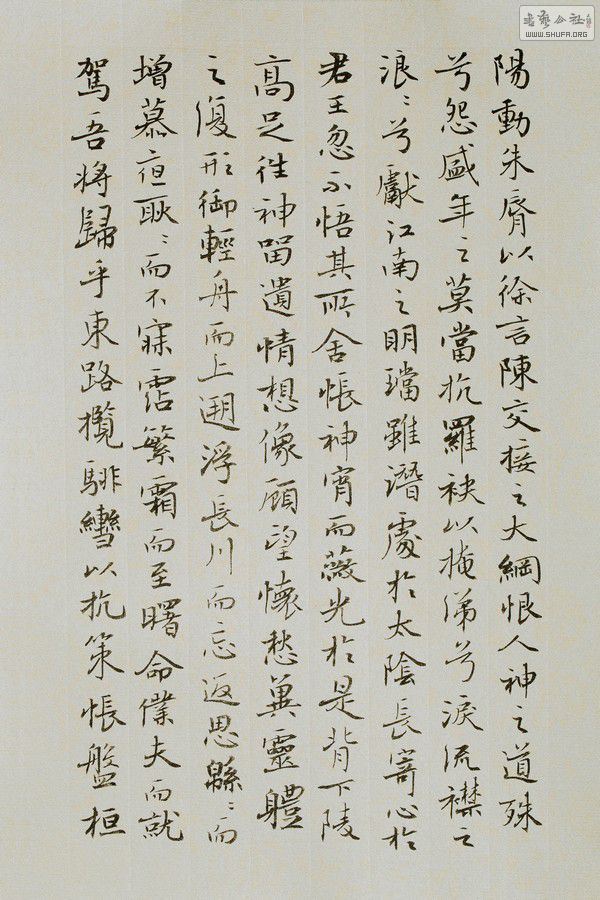 書藝公社
WWW.SHUFA.ORG
陽動朱脣以徐言陳交接之大綱恨人神之道殊
兮怨盛年之莫當抗羅袂以掩涕兮淚流襟之
浪〻兮獻江南之明璫雖潛處於太陰長寄心於
君王忽不悟其所舍悵神宵而蔽光於是背下陵
高足往神留遺情想像顧望懷愁冀靈體
之復形御輕舟而上遡浮長川而忘返思緜〻而
增慕夜耿〻而不寐霑繁霜而至曙命僕夫而就
駕吾將歸乎東路攬騑轡以抗策悵盤桓